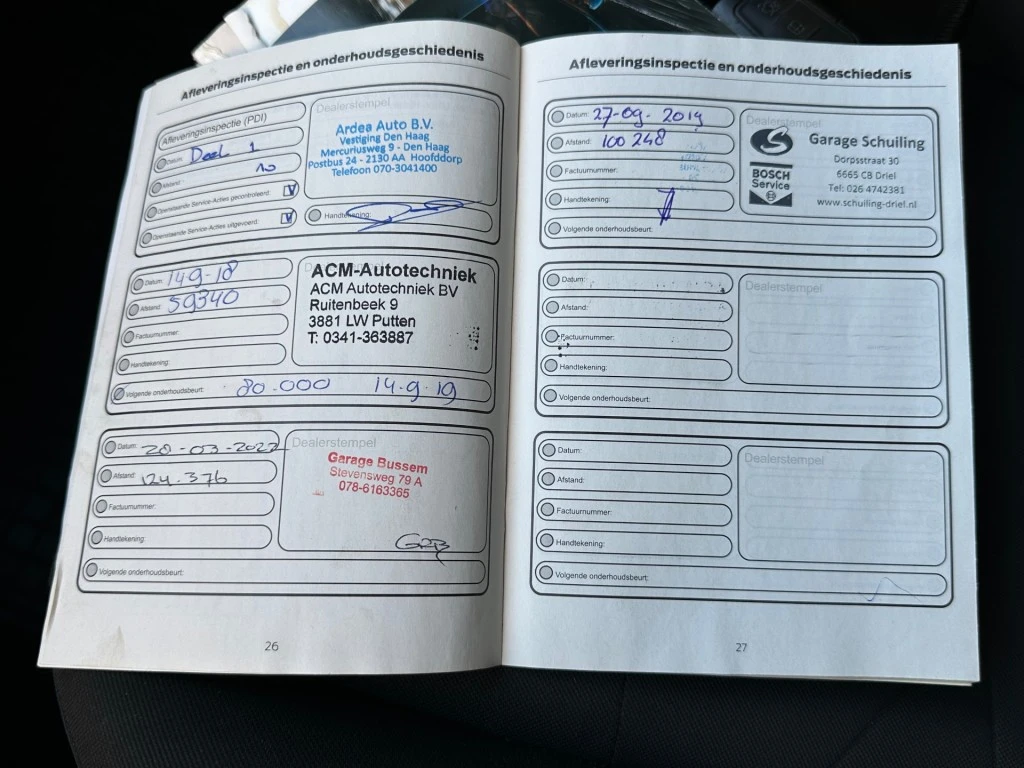 Afleveringsinspectie en onderhoudsgeschiedenis
Afleveringsinspectie (PDI)
Datum: Deel 1
Afstand: 10
Openstaande Service-Acties gecontroleerd: V
Openstaande Service-Acties uitgevoerd: V
Dealerstempel
Ardea Auto B.V.
Vestiging Den Haag
Mercuriusweg 9 - Den Haag
Postbus 24 - 2130 AA Hoofddorp
Telefoon 070-3041400
Handtekening:
Datum: 14-9-18
Afstand: 59340
Factuurnummer:
Handtekening:
Volgende onderhoudsbeurt: 80.000 14-9-19
ACM-Autotechniek
ACM Autotechniek BV
Ruitenbeek 9
3881 LW Putten
T: 0341-363887
Datum: 20-03-2022
Afstand: 124.376
Factuurnummer:
Handtekening:
Volgende onderhoudsbeurt:
Dealerstempel
Garage Bussem
Stevensweg 79 A
078-6163365
26
Afleveringsinspectie en onderhoudsgeschiedenis
Datum: 27-09-2019
Afstand: 100 248
Factuurnummer:
Handtekening:
Volgende onderhoudsbeurt:
Dealerstempel
Garage Schuiling
Dorpsstraat 30
6665 CB Driel
Tel: 026 4742381
www.schuiling-driel.nl
BOSCH
Service
Datum:
Afstand:
Factuurnummer:
Handtekening:
Volgende onderhoudsbeurt:
Dealerstempel
Datum:
Afstand:
Factuurnummer:
Handtekening:
Volgende onderhoudsbeurt:
Dealerstempel
27